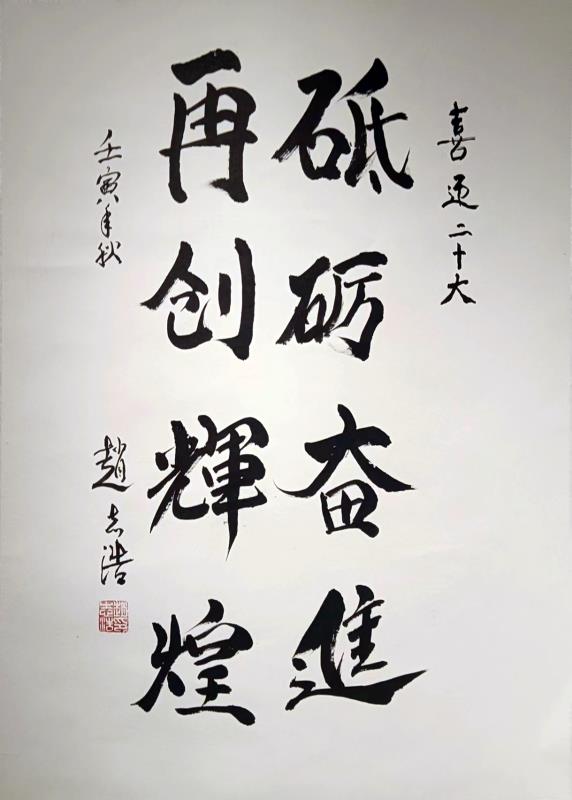 喜迎二十大
砥砺奋進
再创輝煌
壬寅年秋
趙志浩